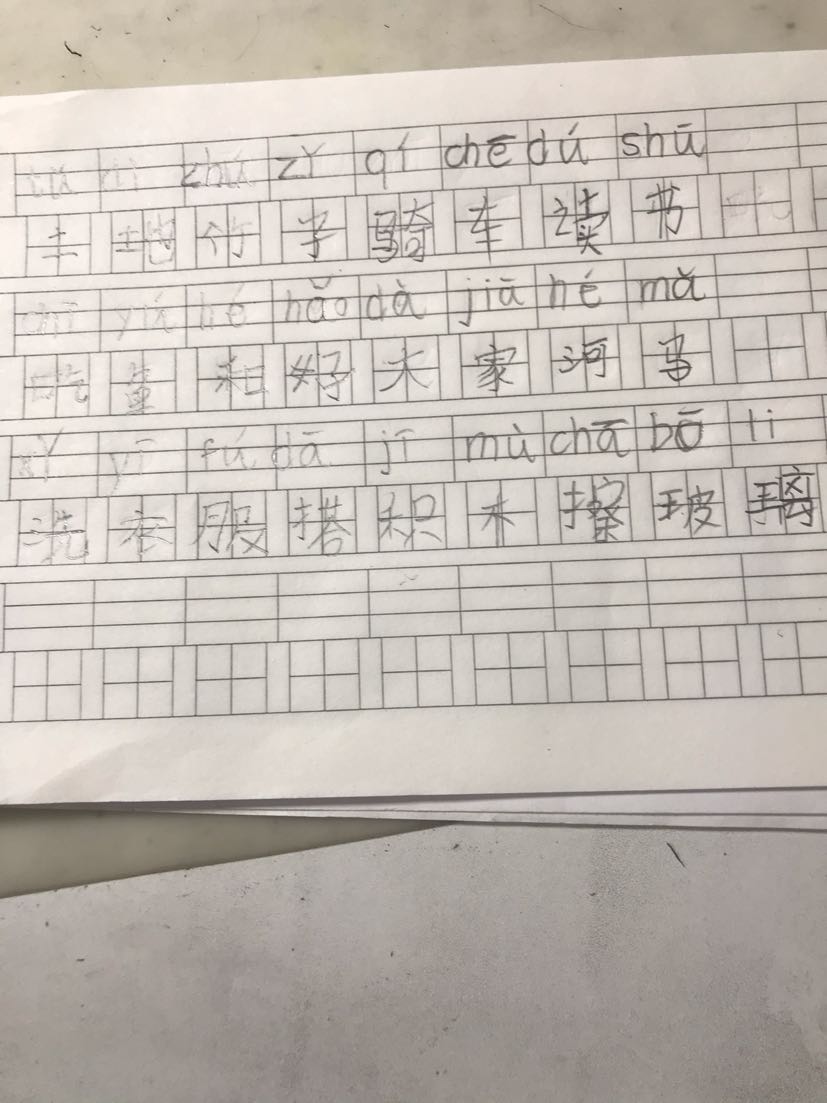 zhú zǐ qí chē dú shū
土 地 竹 子 骑 车 读 书 吃
chī yǐá hé hǎo dà jiā hé mǎ
吃 童 和 好 大 家 河 马
xǐ yī fú dā jī mù chā bō li
洗 衣 服 搭 积 木 擦 玻 璃